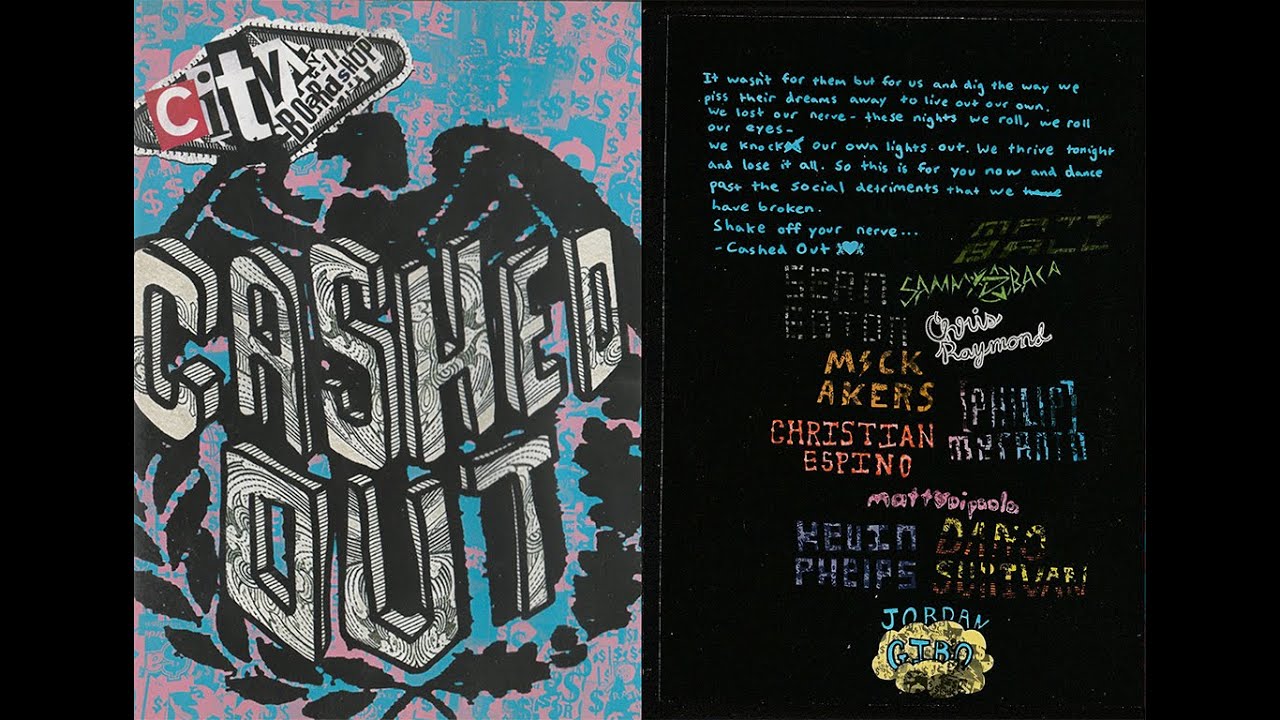 City
Boardshop
CASHED
OUT
It wasn't for them but for us and dig the way we
piss their dreams away to live out our own.
We lost our nerve - these nights we roll, we roll
our eyes-
we knock our own lights out. We thrive tonight
and lose it all. So this is for you now and dance
past the social detriments that we
have broken.
Shake off your nerve...
-Cashed Out
MATT
BALL
SEAN
EATON
SAMMY BACA
Chris
Raymond
MICK
AKERS
[PHILIP]
CHRISTIAN
ESPINO
KEVIN
PHELPS
DANO
JORDAN